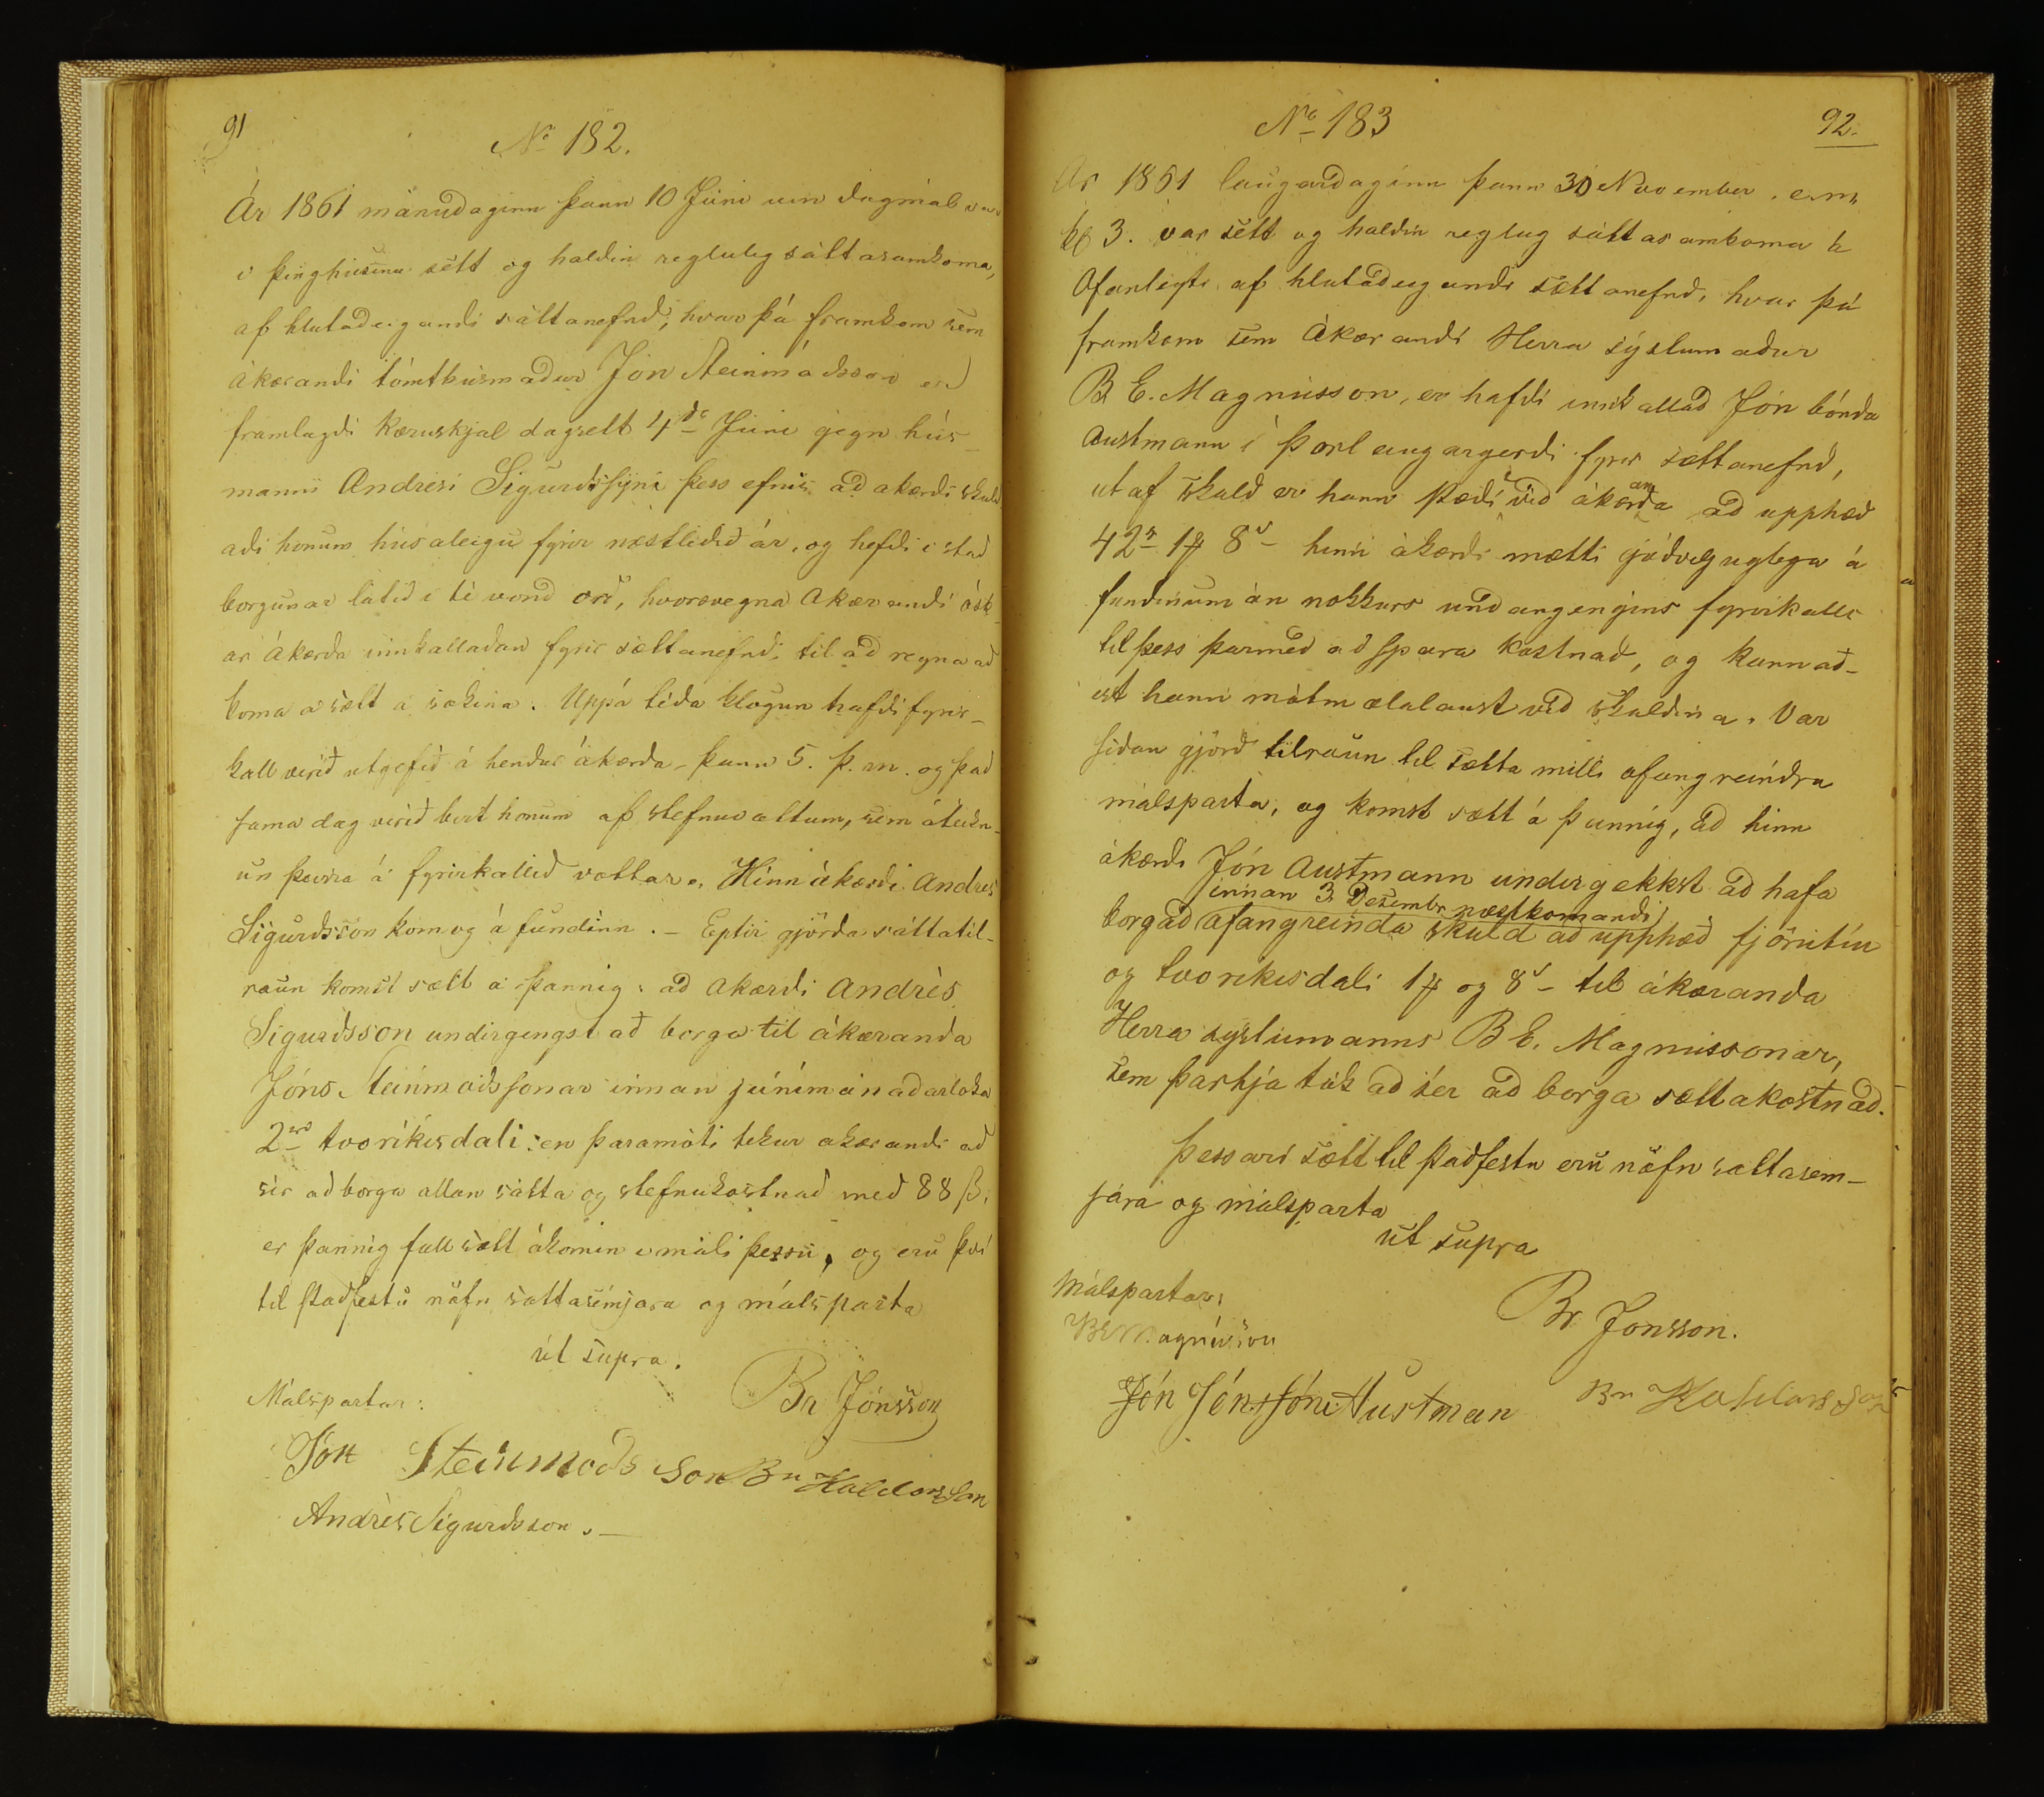 91
No 182.
Ár 1861 mánudaginn þann 10 Júni um dagmál var
í þinghúsinu sétt og haldin regluleg sáttasamkoma,
af hlutadeigandi sáttanefnd, hvar þá framkom sem
ákærandi tómthúsmaður Jón Steinmóðsson er
framlagdi kæruskjal dagsett 4de Júni gegn hús-
manni Andresi Sigurdssyni þess efnis ad akærdi skuld
aði honum húsaleigu fyrir næstliðið ár, og hefdi i stad
borgunar látið i té vond orð, hvorsvegna Akærandi ósk
ar ákærda innkalladan fyrir sættanefnd, til ad reyna ad
koma a sætt a sökina. Uppá téda klögun hafdi fyrir-
kall verið utgefið á hendur ákærda þann 5. þ. m. og það
sama dag verið birt honum af stefnuvottum, sem áteikn-
un þeirra á fyrirkallið vottar. Hinn ákærdi Andres
Sigurdsson kom og á fundinn. – Eptir gjörda sáttatil-
raun komst sætt a þannig: að akærdi Andrès
Sigurdsson undirgengst að borga til ákæranda
Jóns Steinmodssonar innan júnimánadarloka
2rd tvo ríkisdali: en þaramóti tekur akærandi að
sér ad borga allan sátta og stefnukostnad med 88 ß.
er þannig full sætt ákomin i máli þessu, og eru því
til stadfestu nöfn sáttasemjara og málsparta
út supra.
Málspartar:
Br Jónsson
Jón Steinmods son Br Haldorsson
Andrès Sigurdsson. –
No 183
92.
Ár 1861 laugardaginn þann 30 November e.m.
kl 3. var sétt og haldin reglug sáttasamkoma á
Ofanleyti af hlutadeigandi sættanefnd, hvar þá
framkom sem Ákærandi Herra sýslumadur
B E. Magnusson, er hafdi innkallad Jón bónda
Austmann í Þorlaugargerdi fyrir sættanefnd,
ut af skuld er hann stædi i við ákæranda ad upphæd
42r 1 8s hinn ákærdi mætti gódvyluglega á
fundinum án nokkurs undangengins fyrirkalls
til þess þarmed ad spara kostnad, og kannað-
ist hann mótmælalaust við skuldina. Var
síðan gjörð tilraun til sætta milli ofangreindra
málsparta, og komst sætt á þannig, ad hinn
ákærdi Jón Austmann undirgekkst að hafa
innan 3 Desembr næstkomandi
borgad ofangreinda skuld ad upphæd fjörutiu
og tvo ríkisdali 1 og 8s – til ákæranda
Herra syslumanns B E. Magnussonar,
sem þarhjá tók ad sér að borga sættakostnað.
Þessari sætt til stadfestu eru nöfn sættasem-
jara og málsparta
út supra
Málspartar:
BEMagnússon
Br Jonsson.
Jón Jónsson Austman
Br Haldorsson